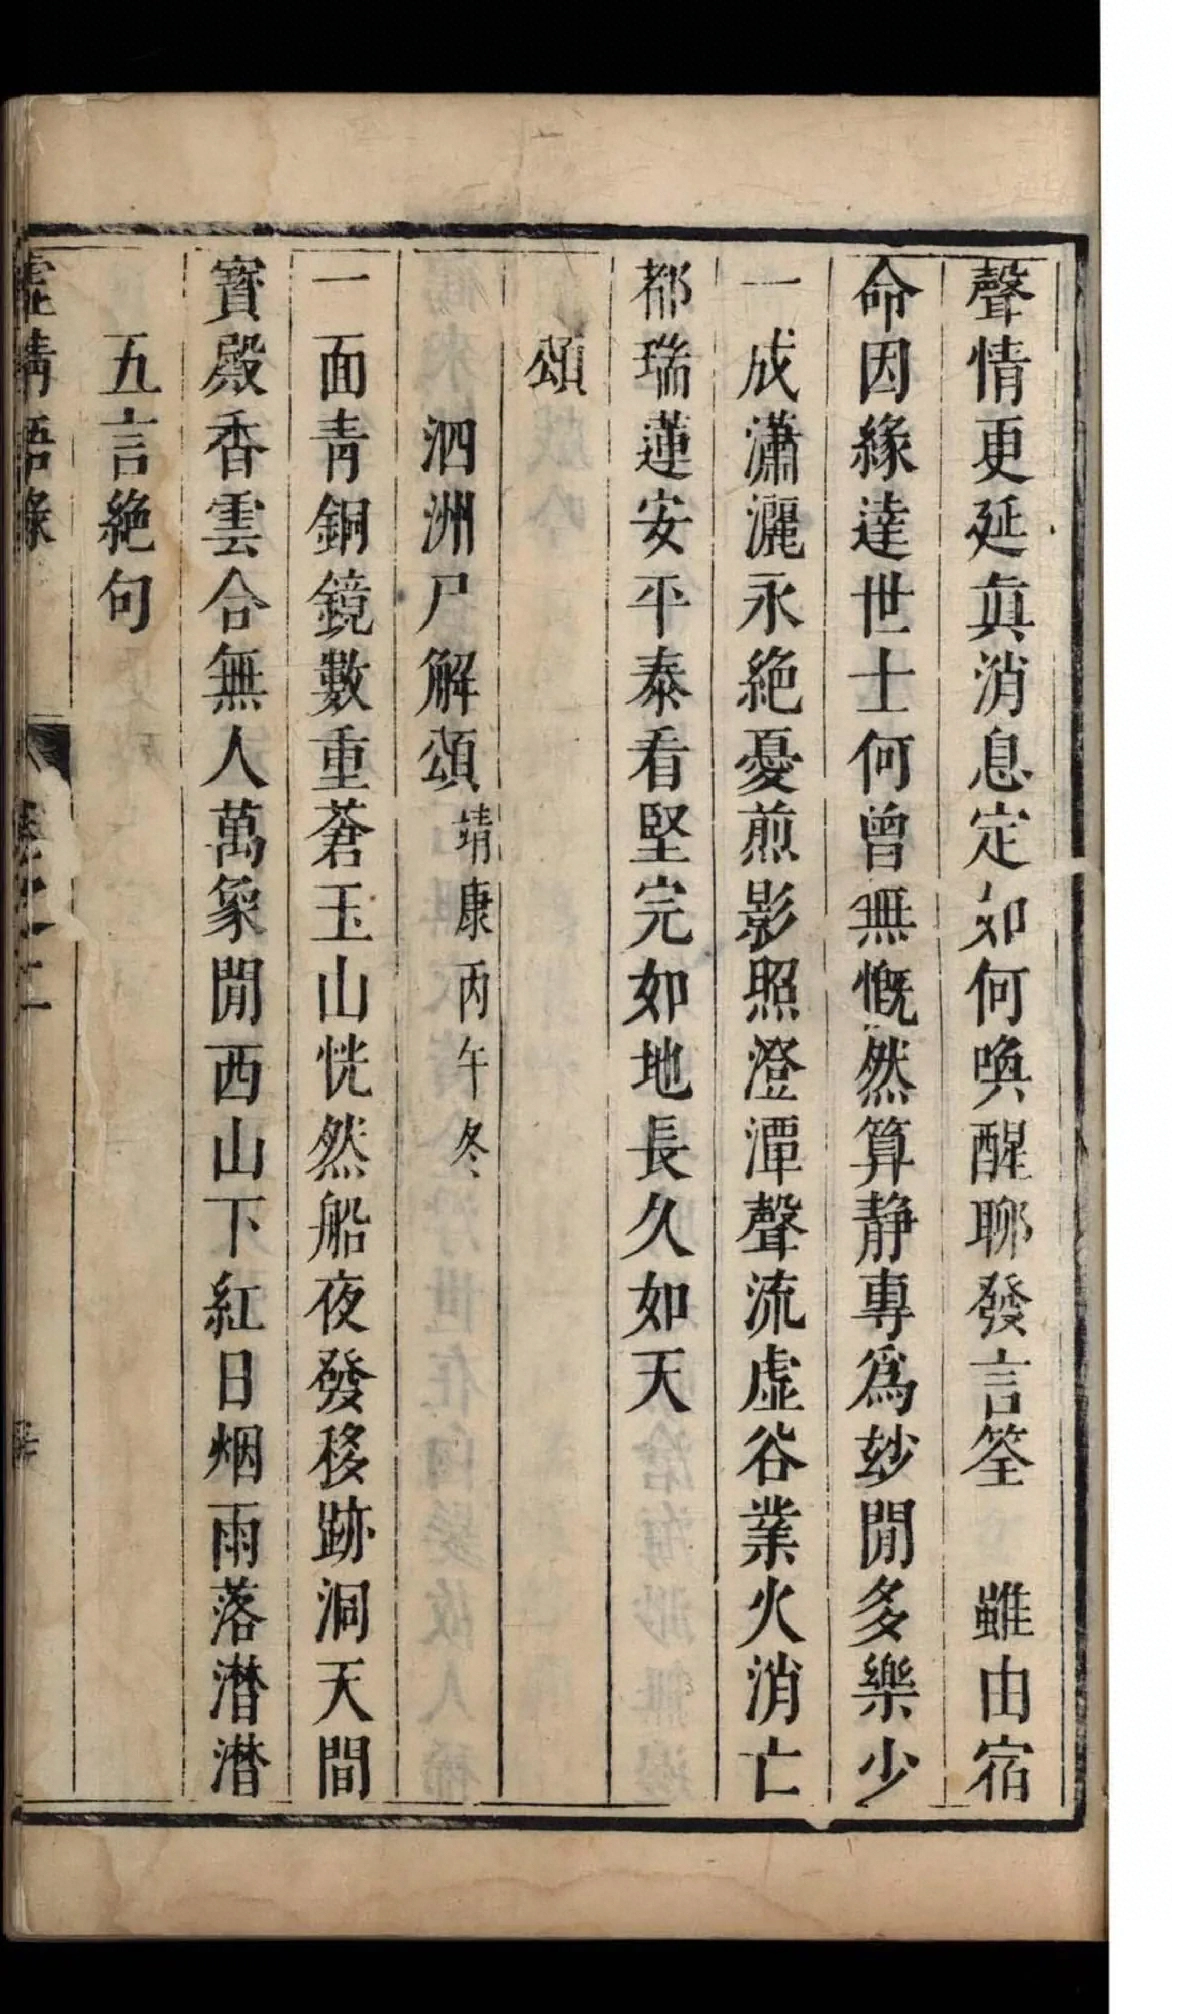 聲情更延眞消息定如何喚醒聊發言筌　雖由宿
命因緣達世士何曾無慨然算靜專爲玅閒多樂少
一成瀟灑永絶憂煎影照澄潭聲流虛谷業火消亡
都瑞蓮安平泰看堅完如地長久如天
頌
泗洲尸解頌靖康丙午冬
一面青銅鏡數重蒼玉山恍然船夜發移跡洞天間
寶殿香雲合無人萬象閒西山下紅日烟雨落潸潸
五言絶句
虛靖語錄
卷之二